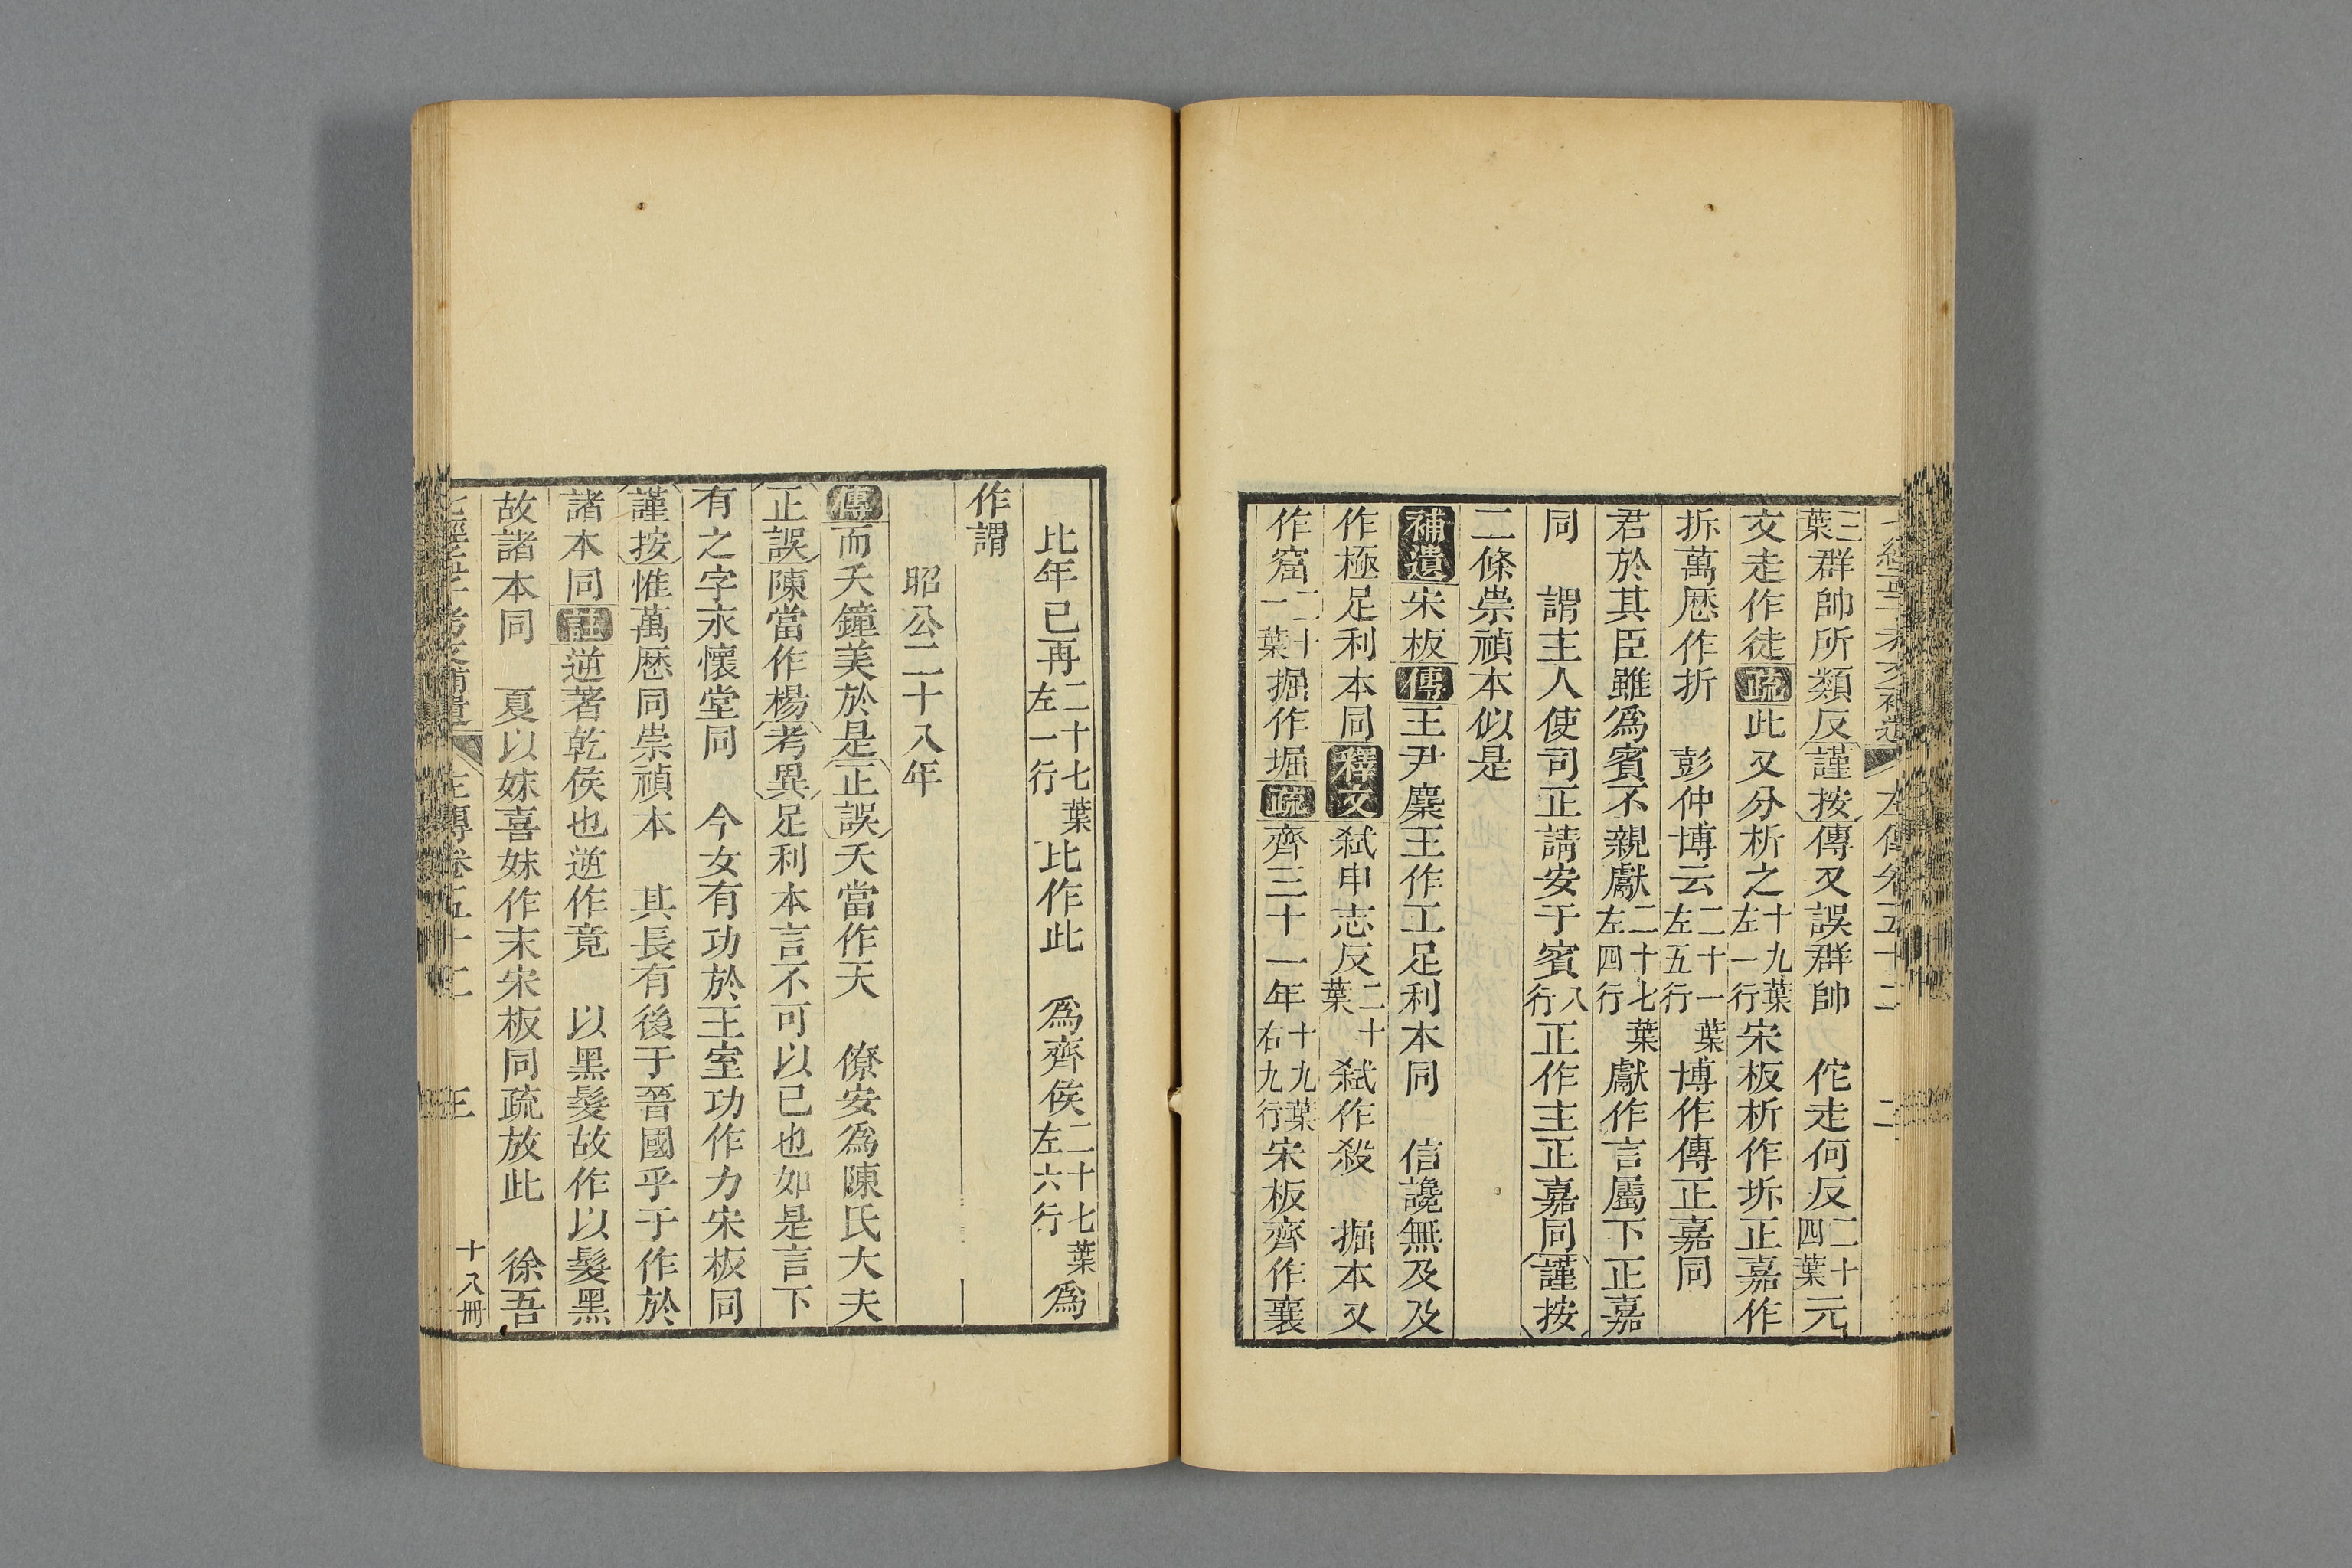 左傳卷五十二 二
三葉群帥所類反謹按傳又誤群帥 佗走何反二十四葉元
文走作徒疏此又分析之十九葉左一行宋板析作圻正嘉作
拆萬厯作折 彭仲博云二十一葉左五行博作傳正嘉同
君於其臣雖爲賓不親獻二十七葉左四行獻作言屬下正嘉
同 謂主人使司正請安于賓八行正作主正嘉同謹按
二條崇禎本似是
補遺宋板傳王尹麋王作工足利本同 信讒無及及
作極足利本同釋文弒申志反二十葉弒作殺 掘本又
作窟二十一葉掘作堀疏齊三十一年十九葉右九行宋板齊作襄
比年已再二十七葉左一行比作此 爲齊侯二十七葉左六行爲
作謂
昭公二十八年
傳而天鐘美於是正誤天當作天 僚安爲陳氏大夫
正誤陳當作楊考異足利本言不可以已也如是言下
有之字永懷堂同 今女有功於王室功作力宋板同
謹按惟萬厯同崇禎本 其長有後于晉國乎于作於
諸本同註逆著乾侯也逆作竟 以黑髮故作以髮黑
故諸本同 夏以妹喜妹作末宋板同疏放此 徐吾
七經孟子考文補遺 左傳卷五十二 三 十八冊